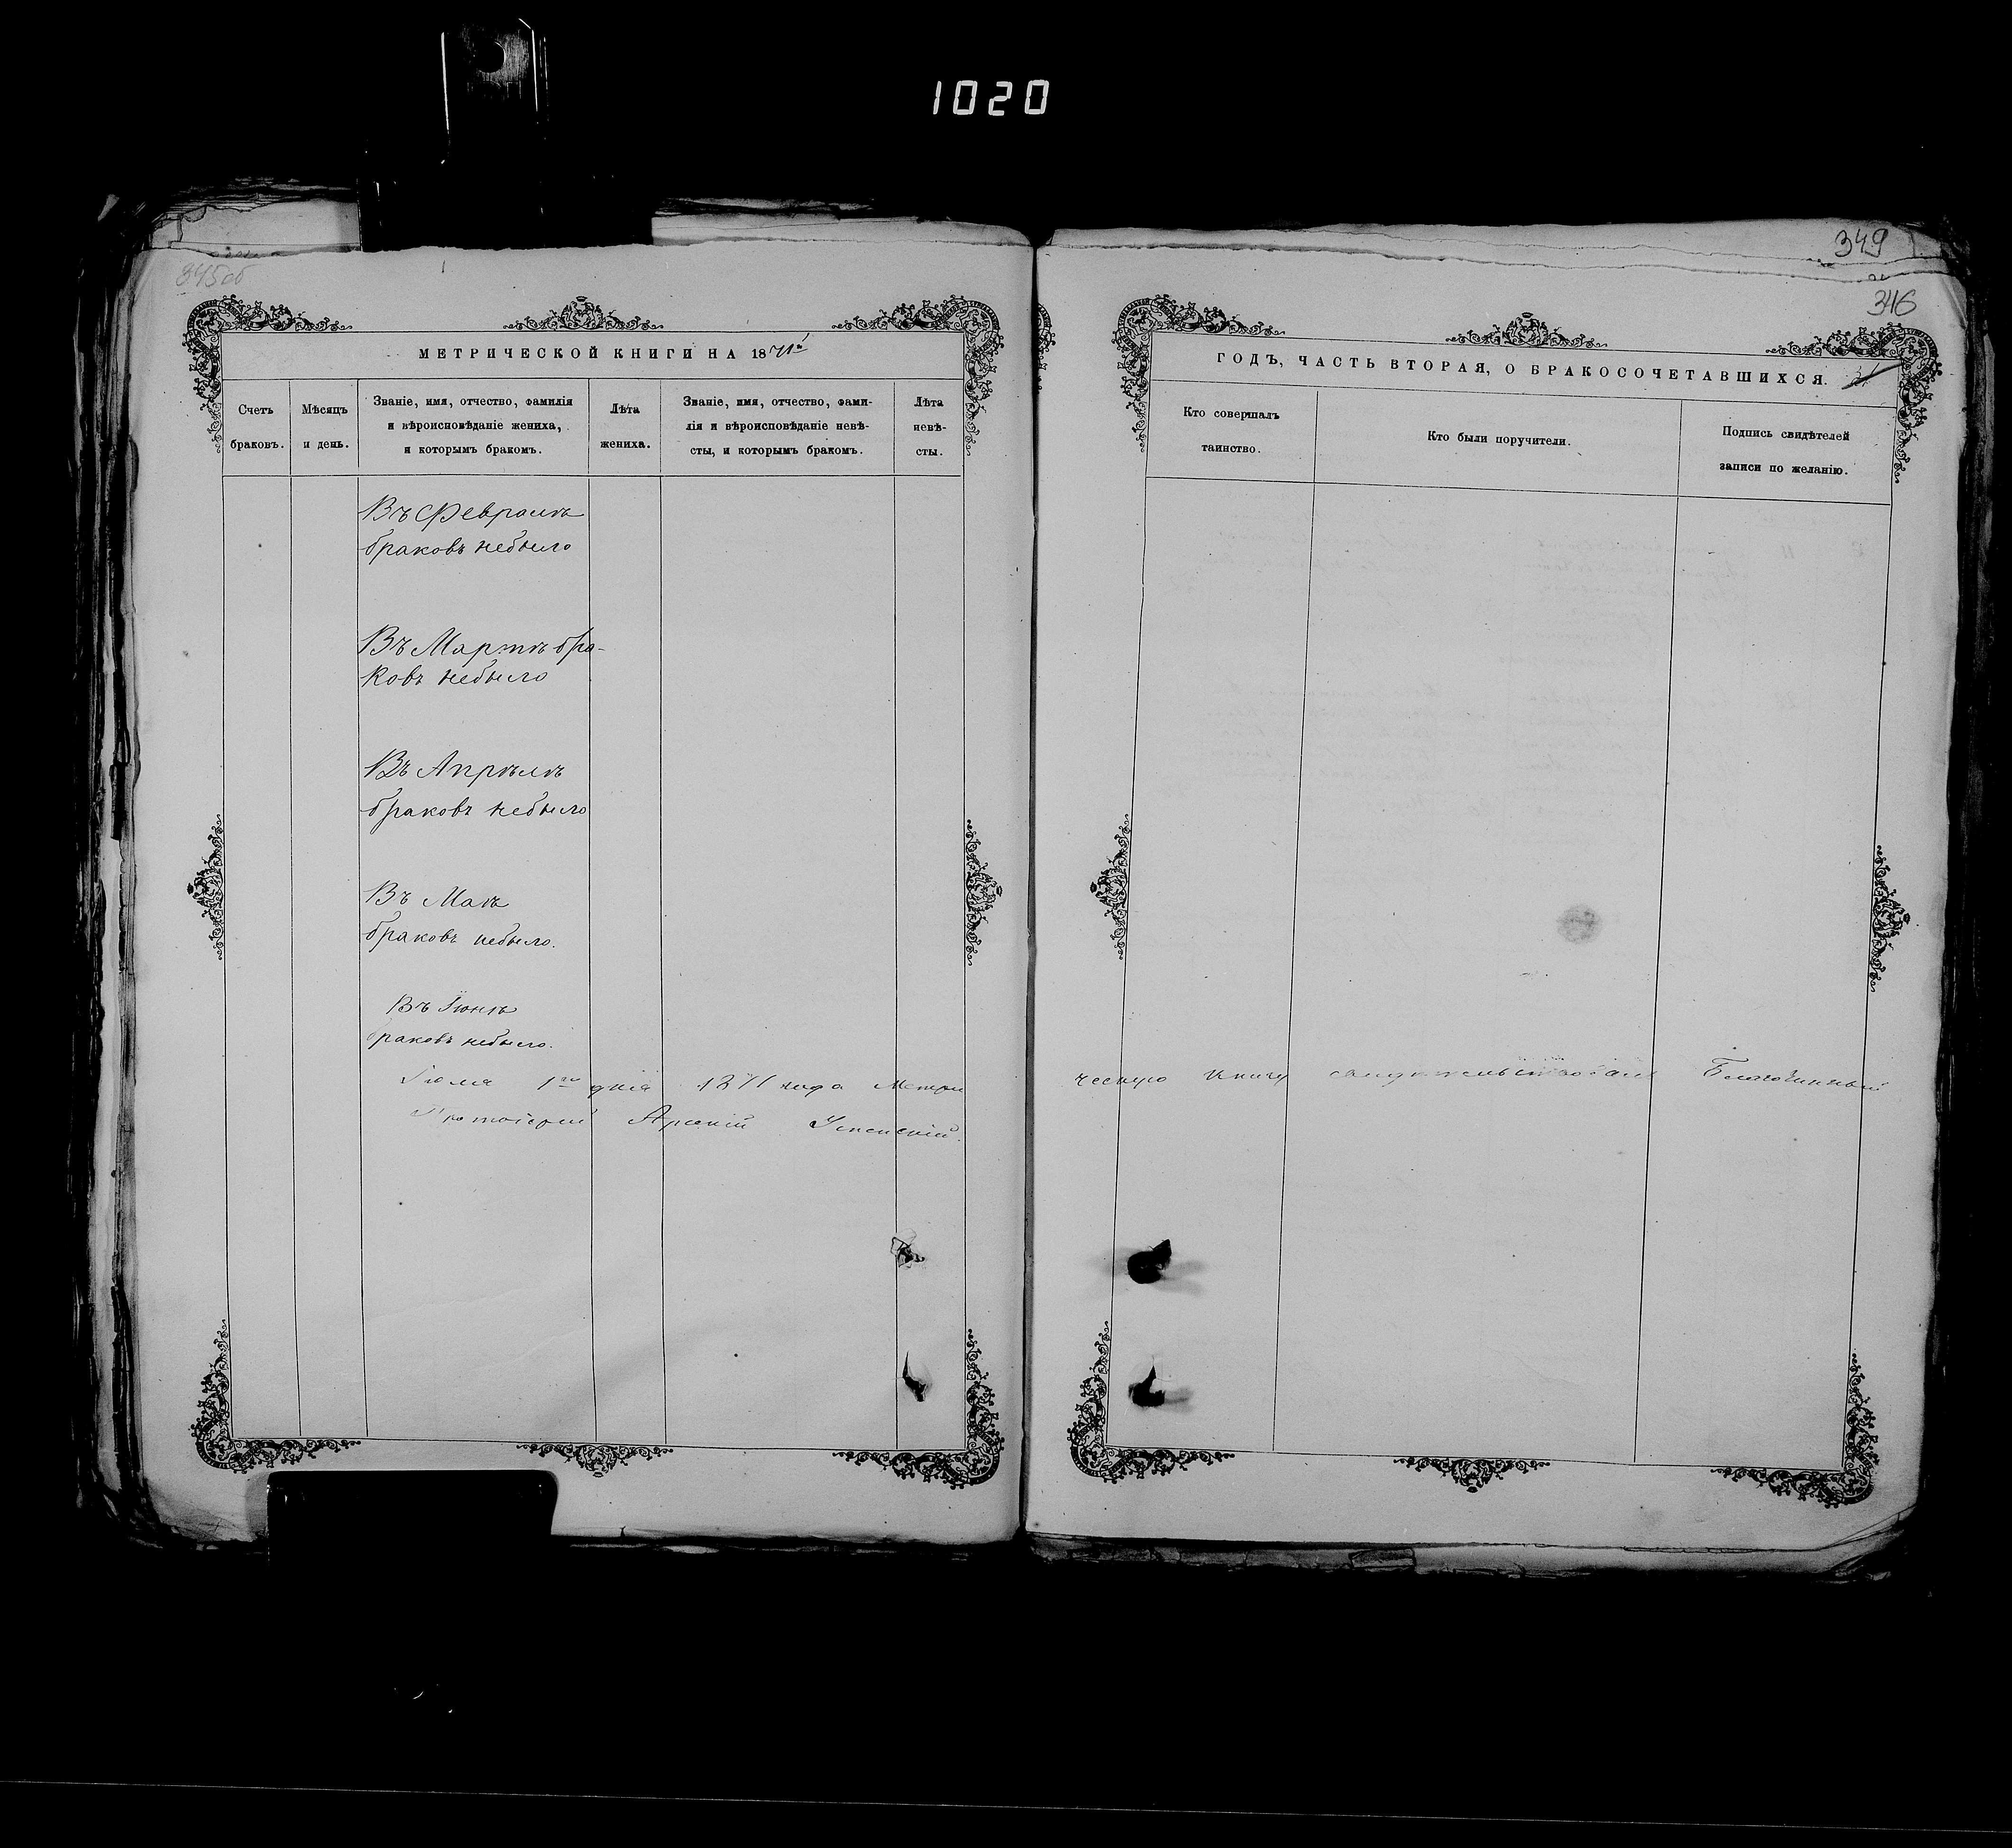 1020
345об
МЕТРИЧЕСКОЙ КНИГИ НА 1871й
Счетъ браковъ.
Мѣсяцъ и день.
Званіе, имя, отчество, фамилія
и вѣроисповѣданіе жениха,
и которымъ бракомъ.
Лѣта жениха.
Званіе, имя, отчество, фами-
лія и вѣроисповѣданіе невѣ-
сты, и которымъ бракомъ.
Лѣта
невѣ-
сты.
Въ Февралѣ
браковъ небыло
Въ Мартѣ бра-
ковъ небыло
Въ Апрѣлѣ
браковъ небыло
Въ Маѣ
браковъ небыло.
Въ Іюнѣ
браковъ небыло.
Іюля 1го дня 1871 года Метри
Протоіерей Арсеній Успенскій.
349
346
ГОДЪ, ЧАСТЬ ВТОРАЯ, О БРАКОСОЧЕТАВШИХСЯ.
Кто совершалъ
таинство.
Кто были поручители.
Подпись свидѣтелей
записи по желанію.
ческую книгу свидѣтельствовалъ Благочинный